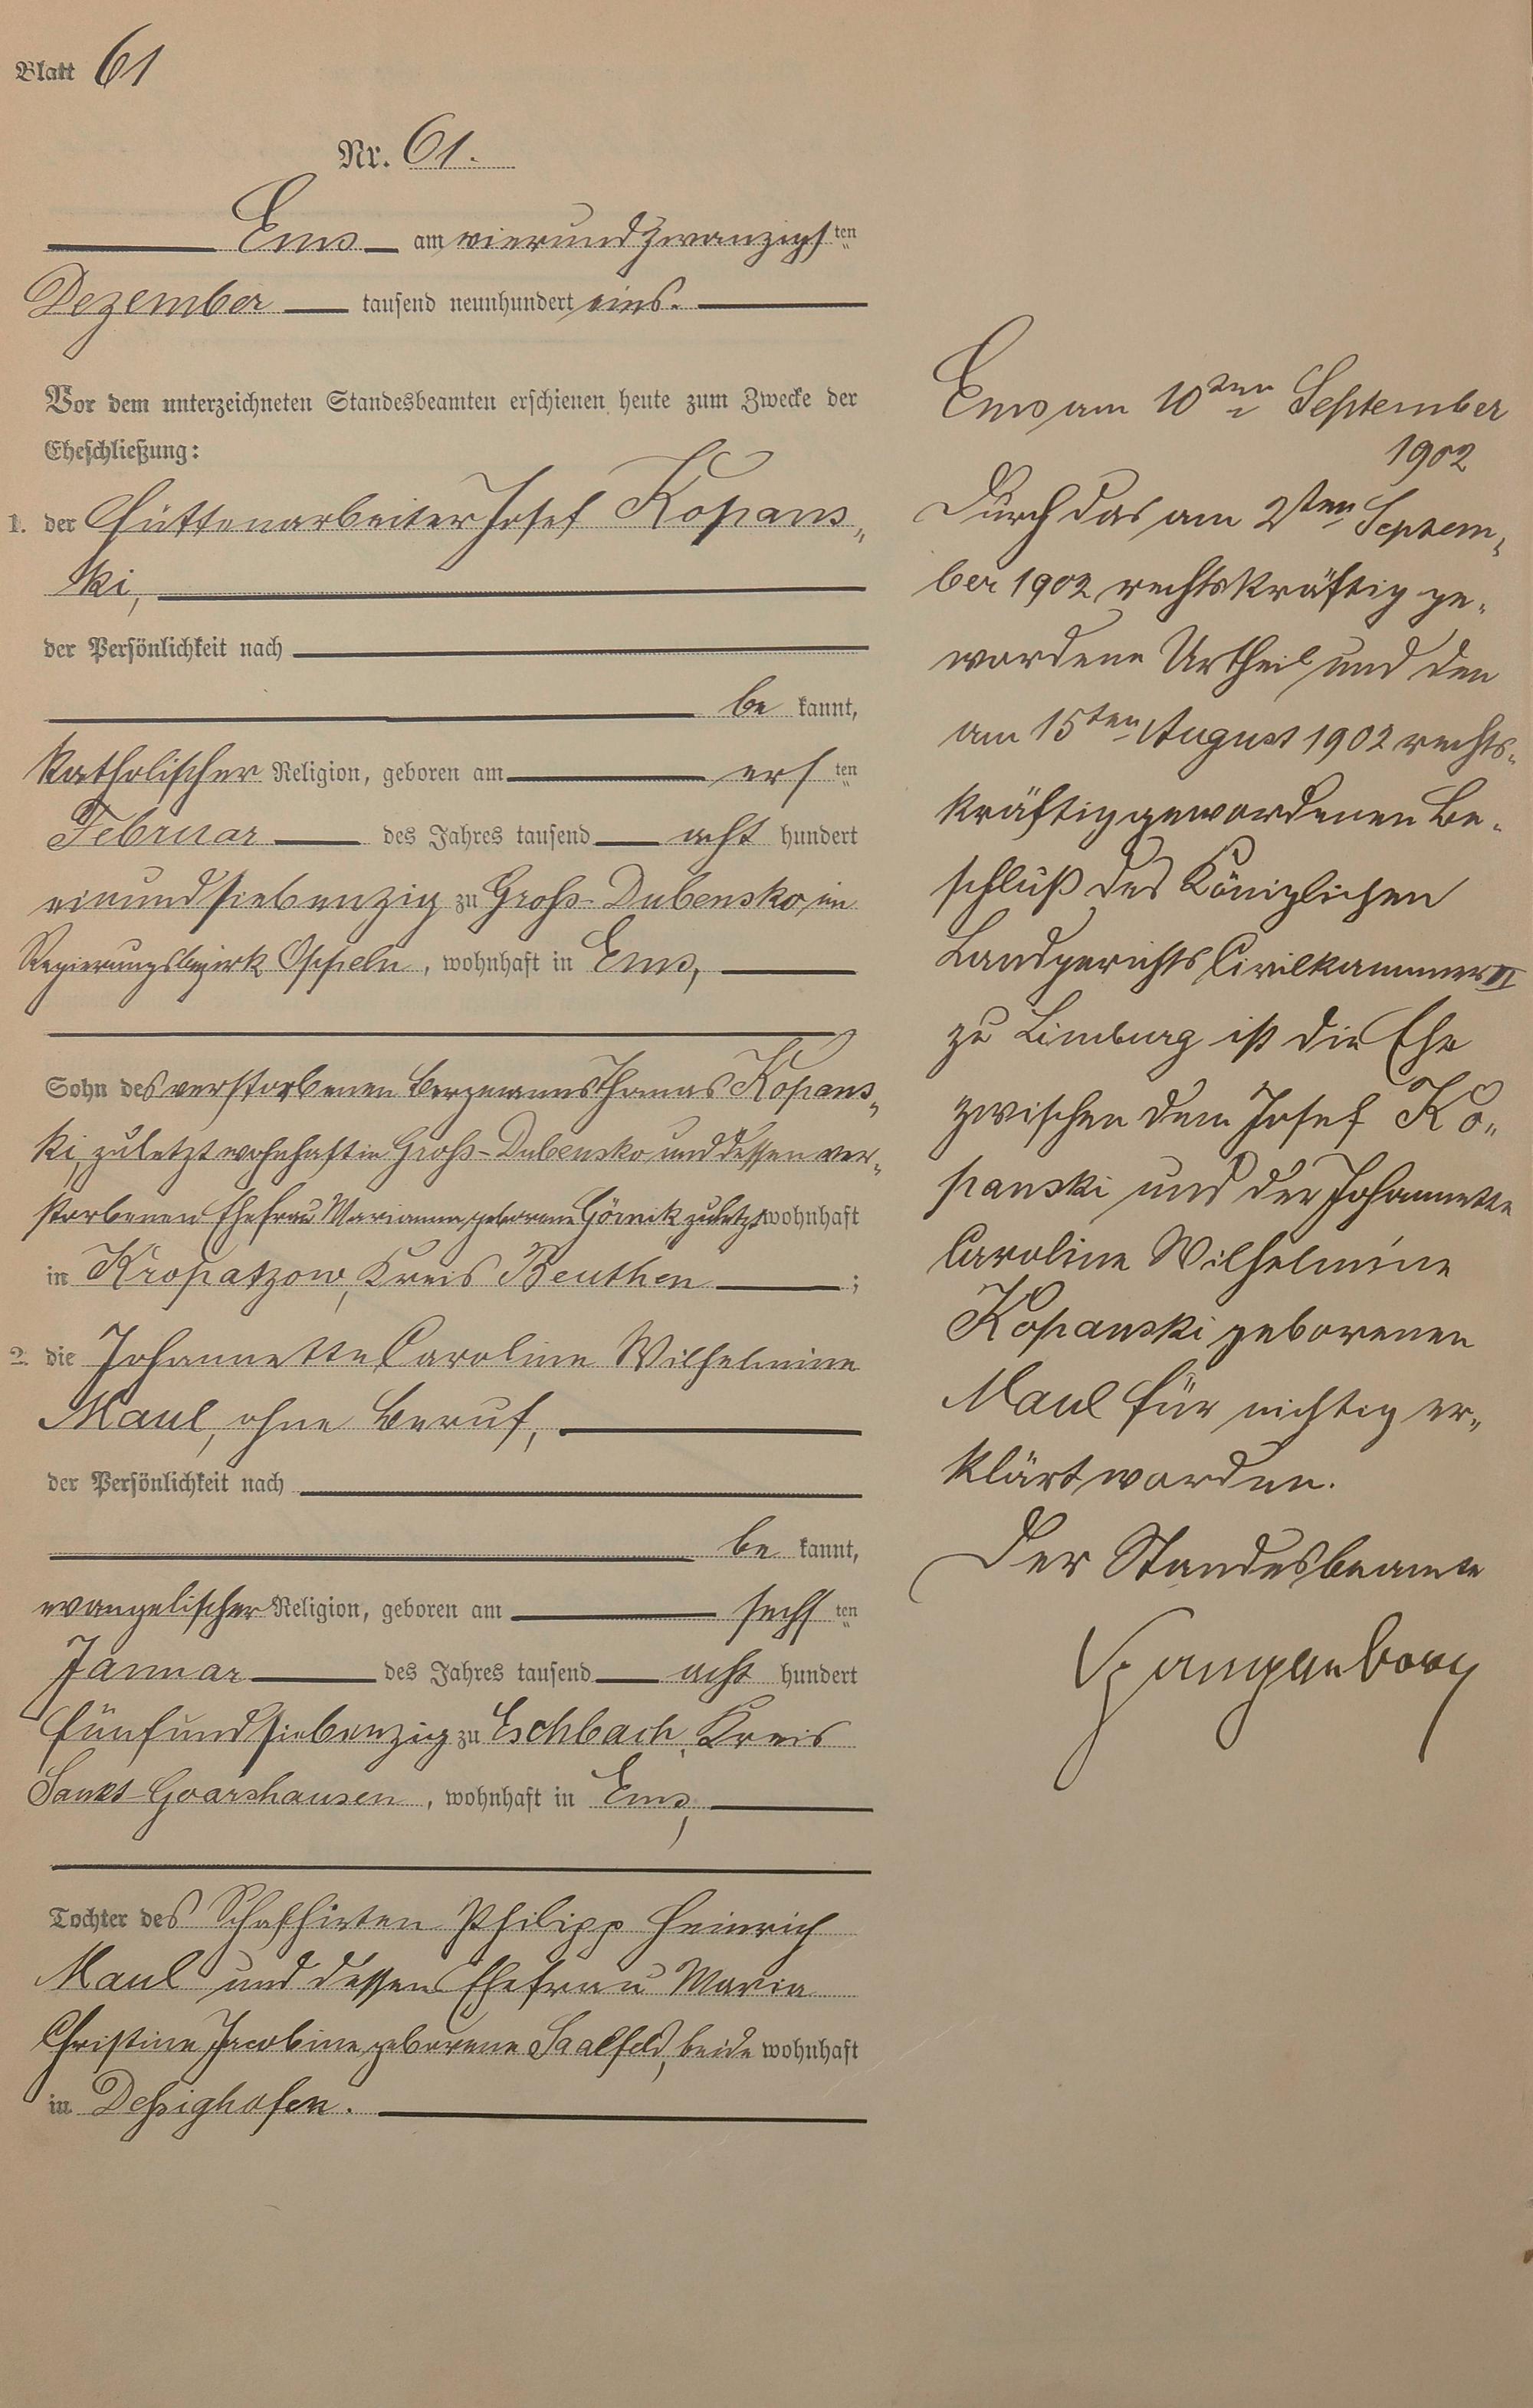 Blatt 61
Nr. 61.
Ems am vierundzwanzigsten
Dezember tausend neunhundert eins.
Vor dem unterzeichneten Standesbeamten erschienen heute zum Zwecke der
Eheschließung:
1. der Hüttenarbeiter Josef Kopans„
ki,
der Persönlichkeit nach
be kannt,
katholischer Religion, geboren am ersten
Februar des Jahres tausend acht hundert
einundsiebenzig zu Groß-Dubensko, im
Regierungsbezirk Oppeln, wohnhaft in Ems,
Sohn des verstorbenen Bergmanns Thomas Kopans„
ki, zuletzt wohnhaft in Groß-Dubensko und dessen ver„
storbenen Ehefrau Marianna, geborene Görnik zuletzt wohnhaft
in Kropatzow, Kreis Beuthen ;
2. die Johannette Caroline Wilhelmine
Maul, ohne Beruf,
der Persönlichkeit nach
be kannt,
evangelischer Religion, geboren am sechsten
Januar des Jahres tausend acht hundert
fünfundsiebenzig zu Eschbach, Kreis
Sankt Goarshausen, wohnhaft in Ems,
Tochter des Schafhirten Philipp Heinrich
Maul und dessen Ehefrau Maria
Christine Jacobine geborene Saalfeld, beide wohnhaft
in Deßighofen.
Ems am 10ten September
1902
Durch das am 2ten Septem„
ber 1902 rechtskräftig ge„
wordene Urtheil und den
am 15ten August 1902 rechts„
kräftig gewordenen Be„
schluß des Königlichen
Landgerichts Civilkammer II
zu Limburg ist die Ehe
zwischen dem Josef Ko„
panski und der Johannette
Caroline Wilhelmine
Kopanski geborenen
Maul für nichtig er„
klärt worden.
Der Standesbeamte
Spangenberg